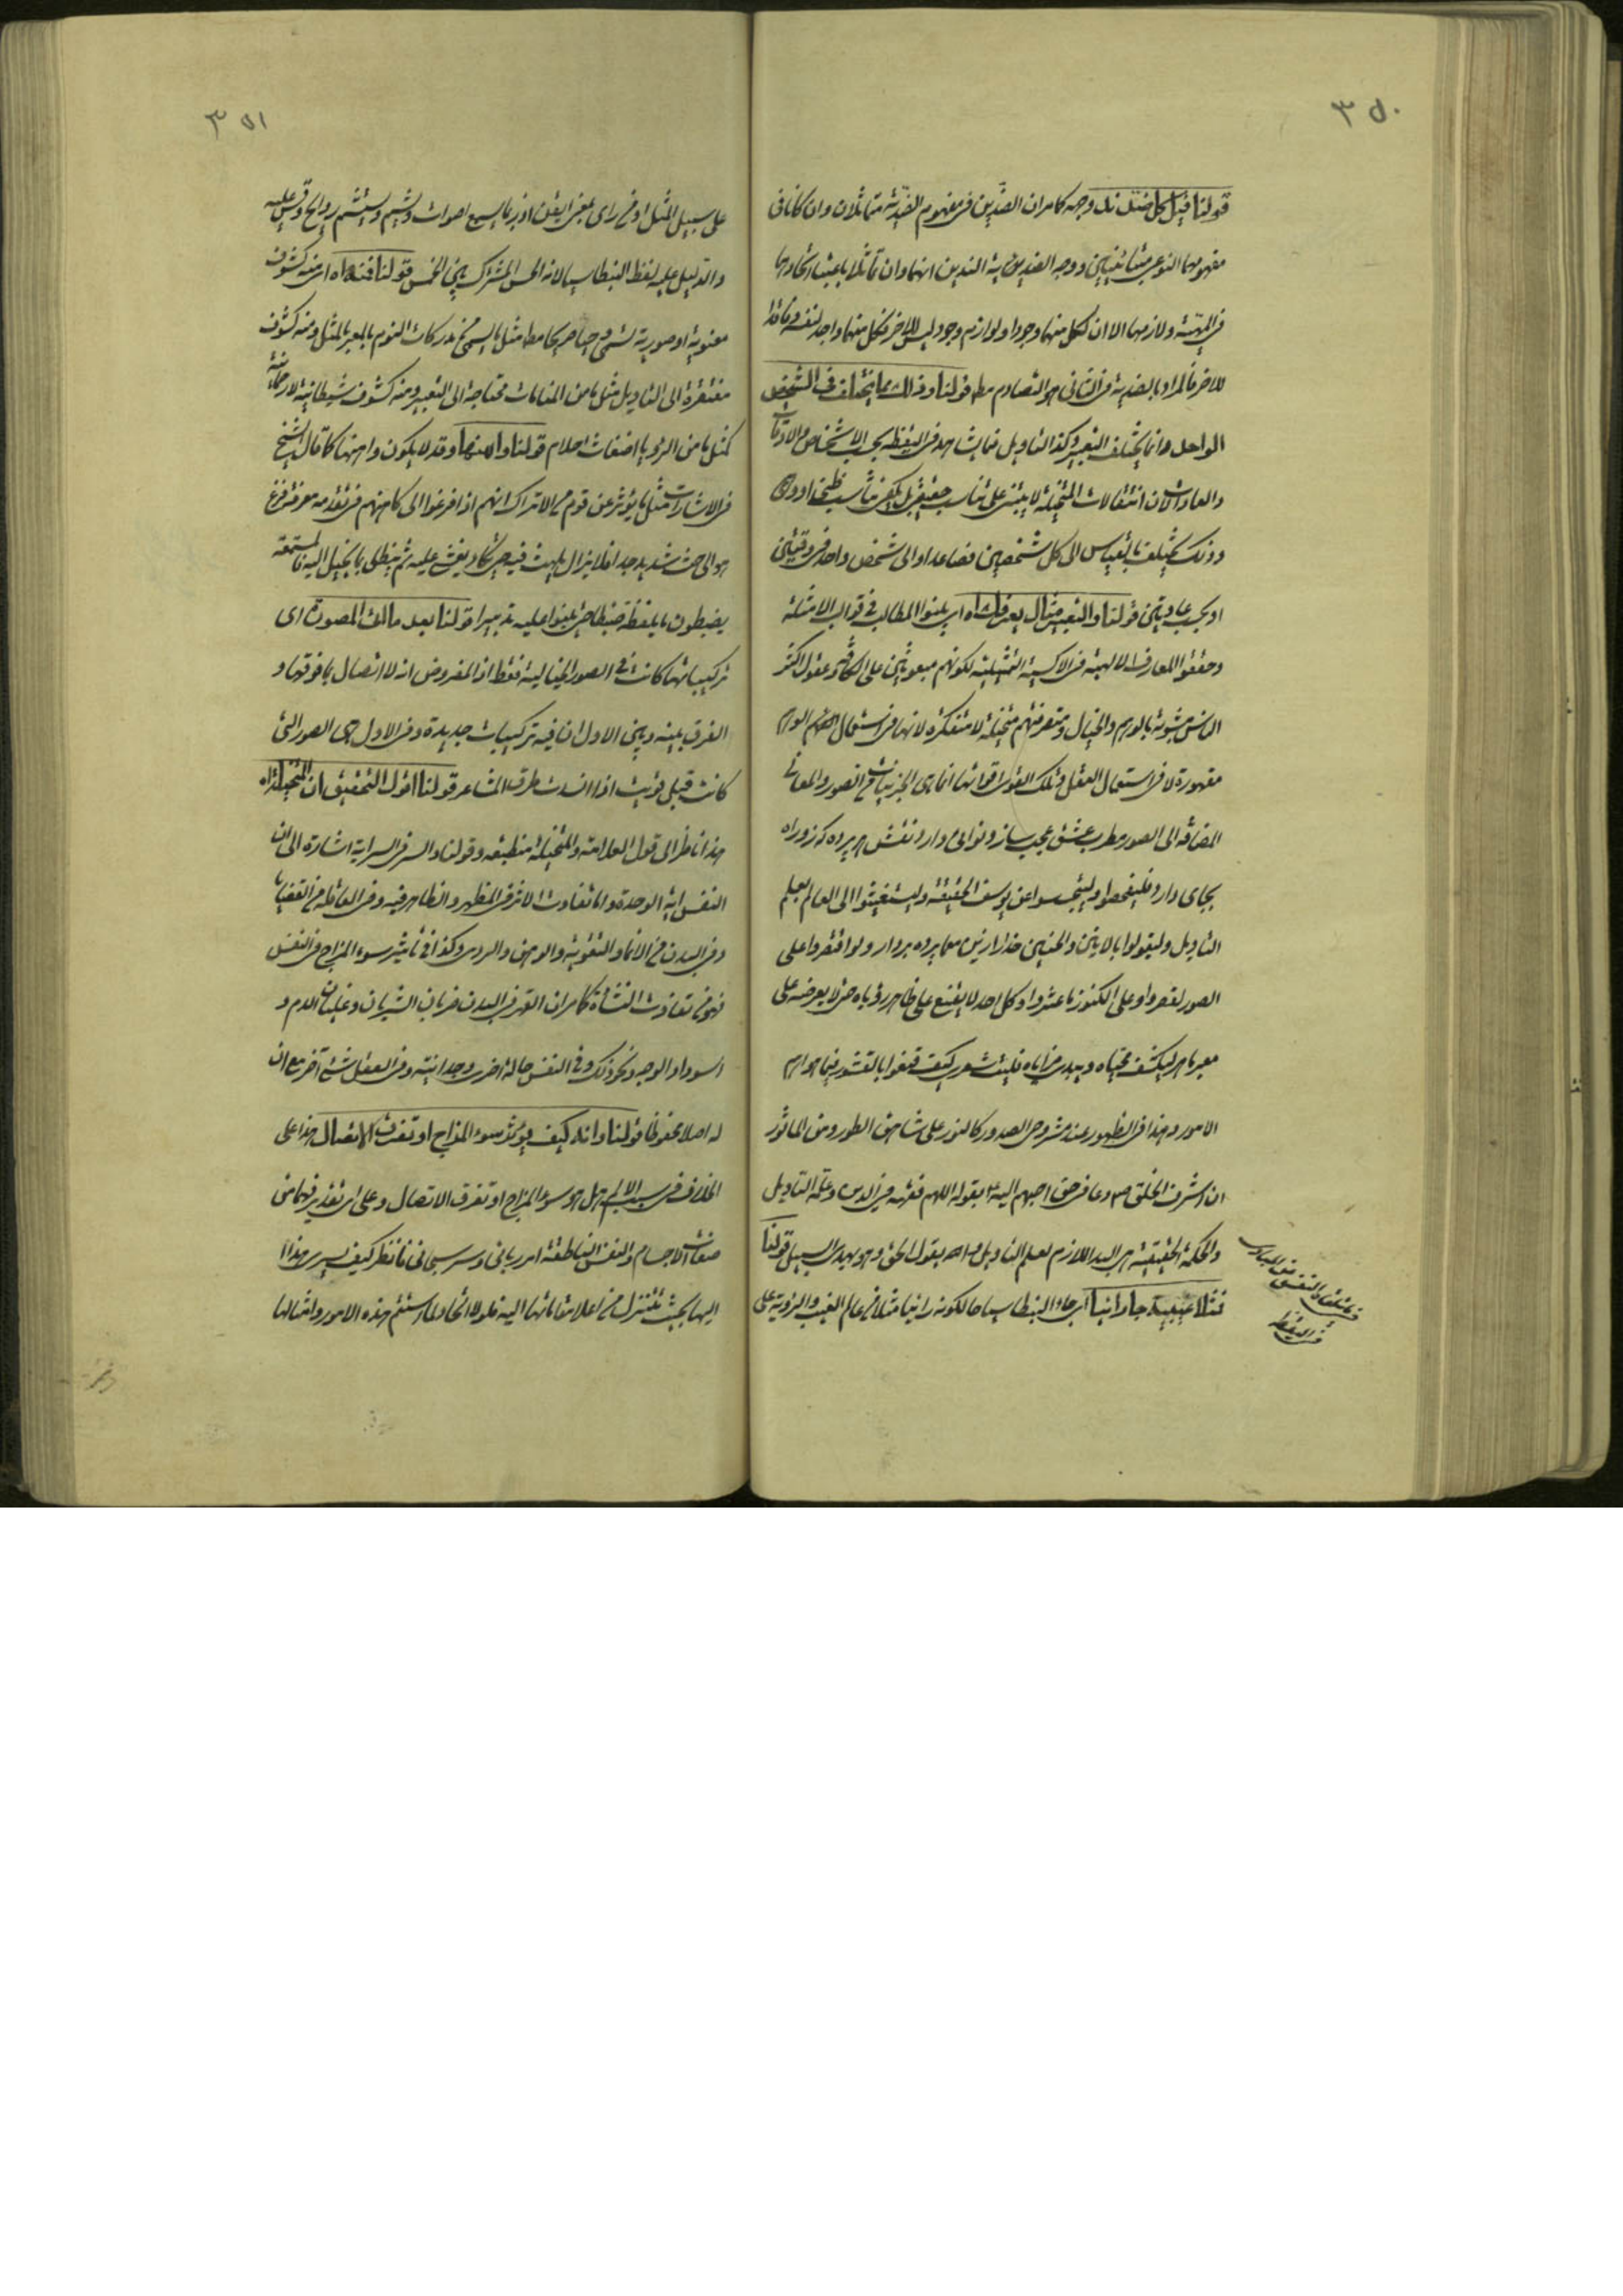 ٣٥٠
قولنا قيل لكل ضد ند وجه كما مر ان الضدين في مفهوم الضدية متماثلان وان كانا في
مفهومهما النوعي متباينين ووجه الضدية الندين انهما وان تماثلا باعتبار اتحادهما
في المهية ولازمها الا ان لكل منهما وجودا ولوازم وجود ليس للاخر فكل منهما واجد لنفسه وفاقد
للاخر فالمراد بالضدية في الثاني هو التصادم مط قولنا وذلك مما يختلف في الشخص
الواحد وانما يختلف التعبير وكذا التاويل فيما يشاهد في اليقظة بحسب الاشخاص والاوقات
والعادات لان انتقالات المتخيلة لا يبتنى على تناسب حقيقي بل يكفي تناسب ظني او وهمي
وذلك يختلف بالقياس الى كل شخصين فصاعدا او الى شخص واحد في وقتين
او بحسب عادتين قولنا والتعبير مثال يعرفك اه اي يلبثوا المطالب في قوالب الامثلة
وحققوا المعارف الالهية في الاكسية التمثيلية لكونهم مبعوثين على الكافة وعقول اكثر
الناس مشوبة بالوهم والخيال ومتصرفتهم متخيلة لا متفكرة لانها في استعمال الوهم
مقهورة لا في استعمال العقل وتلك القوى اقواتها انما هي الجزئيات من الصور والمعاني
المضافة الى الصور مطرب عشق عجب ساز ونوايي دارد نقش هر پرده كه زد راه
بجاى دارد فليفحصوا وليتجسسوا عن يوسف الحقيقة وليستغيثوا الى العالم بعلم
التاويل وليقولوا بالا يتين والحنين خدا را زين معما پرده بردار ولو اقتصروا على
الصور لقصروا وعلى الكنوز ما عثروا وكل احد لا يقنع على ظاهر رؤياه حتى لا يعرضه على
معبر ماهر ليكشف محياه ويبدى مزاياه فليت شعرى كيف قنعوا بالقشور فيما هو اهم
الامور وهذا في الظهور عند مشروحي الصدور كالنور على شاهق الطور ومن الماثور
ان اشرف الخلق ص دعا في حق احبهم اليه ع بقوله اللهم فقهه في الدين وعلمه التاويل
والحكمة الحقيقية هي البد اللازم لعلم التاويل والله يقول الحق وهو يهدى السبيل قولنا
فتلا غيبية جاء رانيا اي جاء البنطاسيا حالكونه رانيا مثلا في عالم الغيب والرؤية على
في اليقظة
٣٥١
على سبيل المثل او من راى بمعنى ايقن اذ ربما يسمع اصوات ويشم ويستشم روايح وقس عليه
والدليل عليه لفظ البنطاسيا لانه الحس المشترك بين الخمس قولنا فمنه اه اي منه كشوف
معنوية او صورية تسمى وحيا صريحا مط مثل ما يسمى من مدركات النوم بالمعبر بالمثل ومنه كشوف
مفتقرة الى التاويل مثل ما من المنامات محتاجة الى التعبير ومنه كشوف شيطانية لا رحمانية
كمثل ما من الرؤيا اضغاث احلام قولنا واهنها وقد لا يكون واهنها كما قال الشيخ
في الاشارات مثل ما يؤثر عن قوم من الاتراك انهم اذا فزعوا الى كاهنهم في تقدمة معرفة فزع
هو الى حث شديد جدا فلا يزال يلهث فيه حتى يكاد يغشى عليه ثم ينطق بما يخيل اليه والمستمعة
يضبطون ما يلفظه ضبطا حتى يبنوا عليه تدبيرا قولنا بعد مالك المصورة اى
تركيباتها كانت في الصور الخيالية فقط اذ المفروض انه لا اتصال بما فوقها و
الفرق بينه وبين الاول ان فيه تركيبات جديدة وفي الاول هي الصور التى
كانت قبل قويت اذا انسدت طرق المشاعر قولنا اقول التحقيق ان المتخيلة اه
هذا ناظر الى قول العلامة والمتخيلة منطبعه وقولنا والسر في السراية اشارة الى ان
النفس اية الوحدة وانما تفاوت الاثر في المظهر والظاهر فيه وفي العاقلة من القضايا
وفي البدن من الانماء والتقوية والوهن والردى وكذا في تاثير سوء المزاج في النفس
فهو من تفاوت النشاة كما مر ان القهر في البدن ضربان الشريان وغليان الدم و
اسوداد الوجه ونحو ذلك وفي النفس حالة اخرى وجدانية وفي العقل شئ آخر مع ان
له اصلا محفوظا قولنا وانه كيف يؤثر سوء المزاج او تفرق الاتصال هذا على
الخلاف في سبب الالم هل هو سوء المزاج او تفرق الاتصال وعلى اى تقدير فهما من
صفات الاجسام والنفس الناطقة امر رباني وسر سبحاني فانظر كيف يسرى هذا
اليها بحيث تتنزل من اعلا مقاماتها اليه فلولا اتحاد لما استتم هذه الامور وامثالها